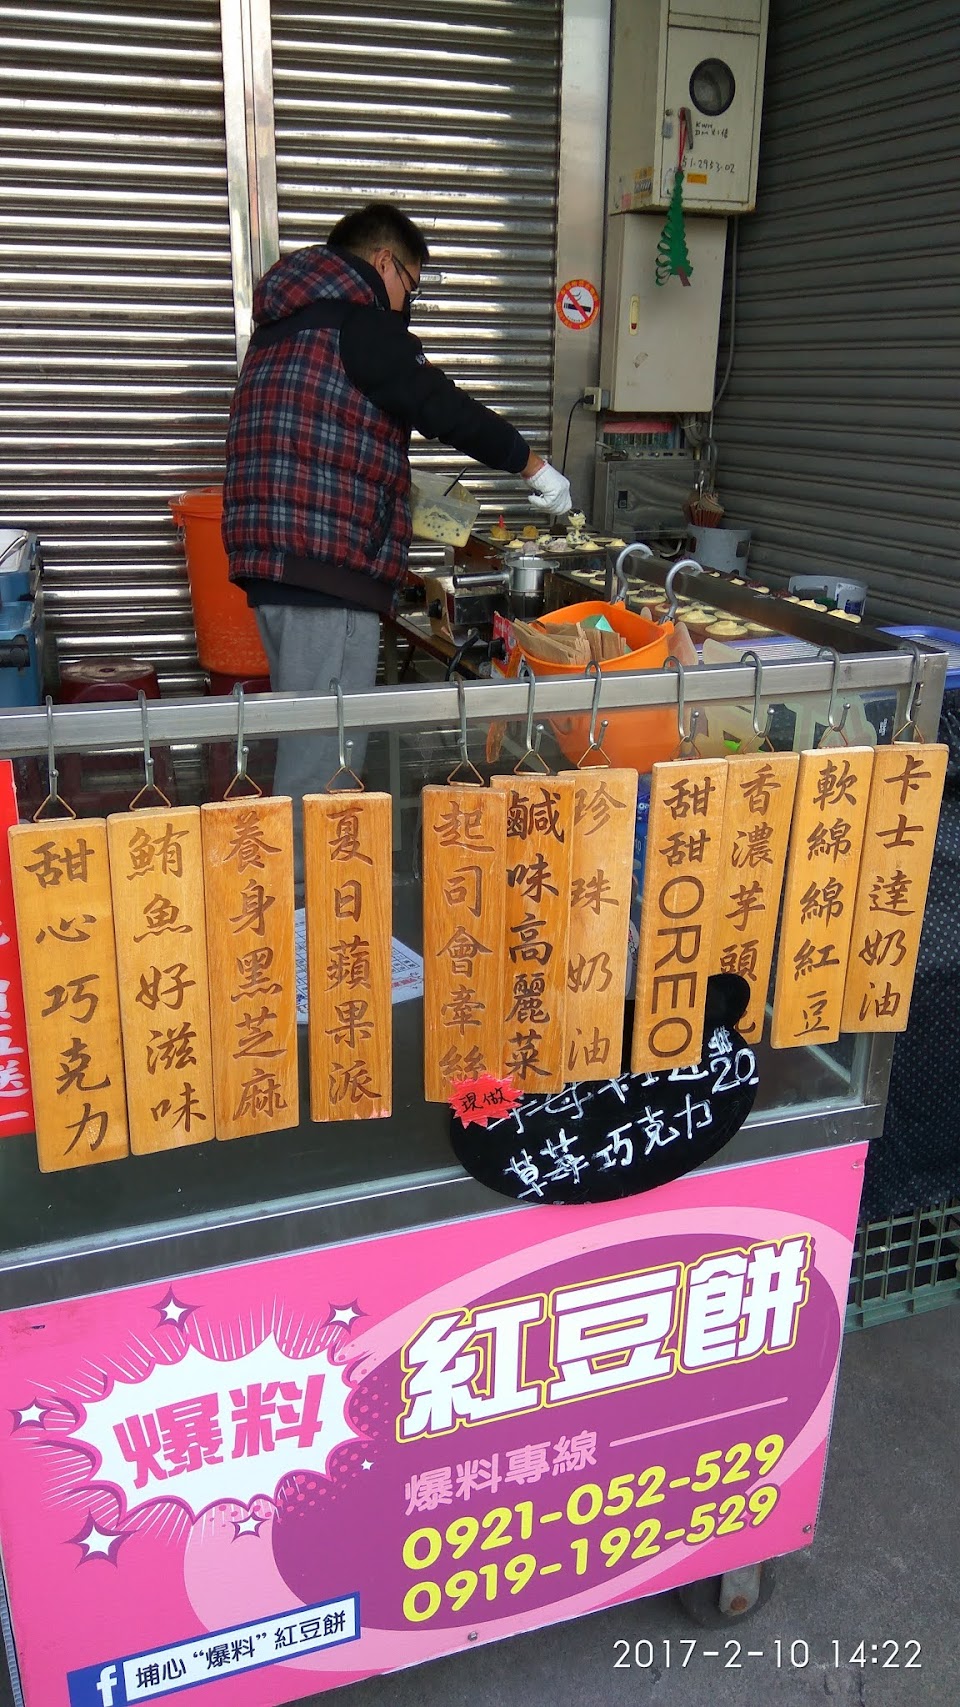 甜心巧克力
鮪魚好滋味
養身黑芝麻
夏日蘋果派
起司會牽絲
現做
鹹味高麗菜
珍珠奶油
甜甜OREO
香濃芋頭
軟綿綿紅豆
卡士達奶油
20
草莓巧克力
爆料
紅豆餅
爆料專線
0921-052-529
0919-192-529
f 埔心“爆料”紅豆餅
2017-2-10 14:22